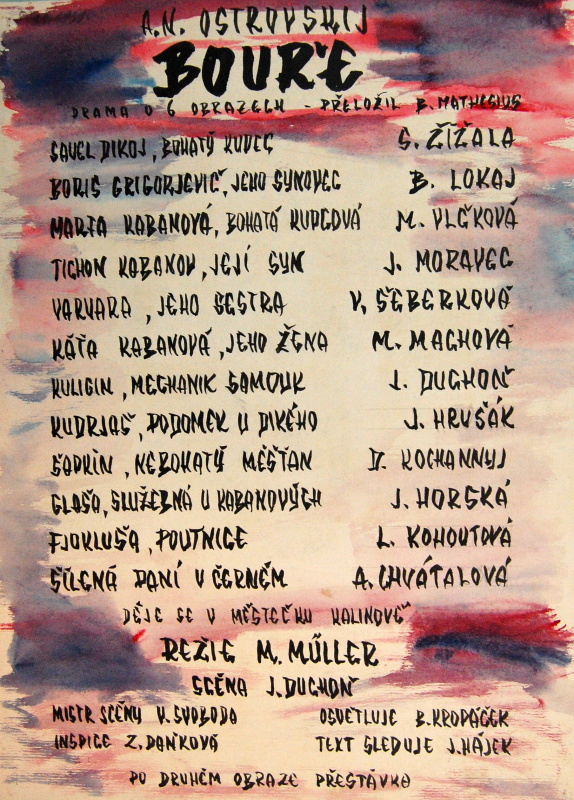 A.N. OSTROVSKIJ
BOUŘE
DRAMA O 6 OBRAZECH - PŘELOŽIL B. MATHESIUS
SAVEL DIKOJ, BOHATÝ KUPEC S. ŽÍŽALA
BORIS GRIGORJEVIČ, JEHO SYNOVEC B. LOKAJ
MARTA KABANOVÁ, BOHATÁ KUPCOVÁ M. VLČKOVÁ
TICHON KABANOV, JEJÍ SYN J. MORAVEC
VARVARA, JEHO SESTRA V. ŠEBERKOVÁ
KÁŤA KABANOVÁ, JEHO ŽENA M. MACHOVÁ
KULIGIN, MECHANIK SAMOUK J. DUCHOŇ
KUDRJAŠ, PODOMEK U DIKÉHO J. HRUŠÁK
ŠAPKIN, NEBOHATÝ MĚŠŤAN D. KOCHANNYJ
GLAŠA, SLUŽEBNÁ U KABANOVÝCH J. HORSKÁ
FJOKLUŠA, POUTNICE L. KOHOUTOVÁ
ŠÍLENÁ PANÍ V ČERNÉM A. CHVÁTALOVÁ
DĚJE SE V MĚSTEČKU KALINOVĚ
REŽIE M. MÜLLER
SCÉNA J. DUCHOŇ
MISTR SCÉNY V. SVOBODA OSVĚTLUJE B. KROPÁČEK
INSPICE Z. DAŇKOVÁ TEXT SLEDUJE J. HÁJEK
PO DRUHÉM OBRAZE PŘESTÁVKA